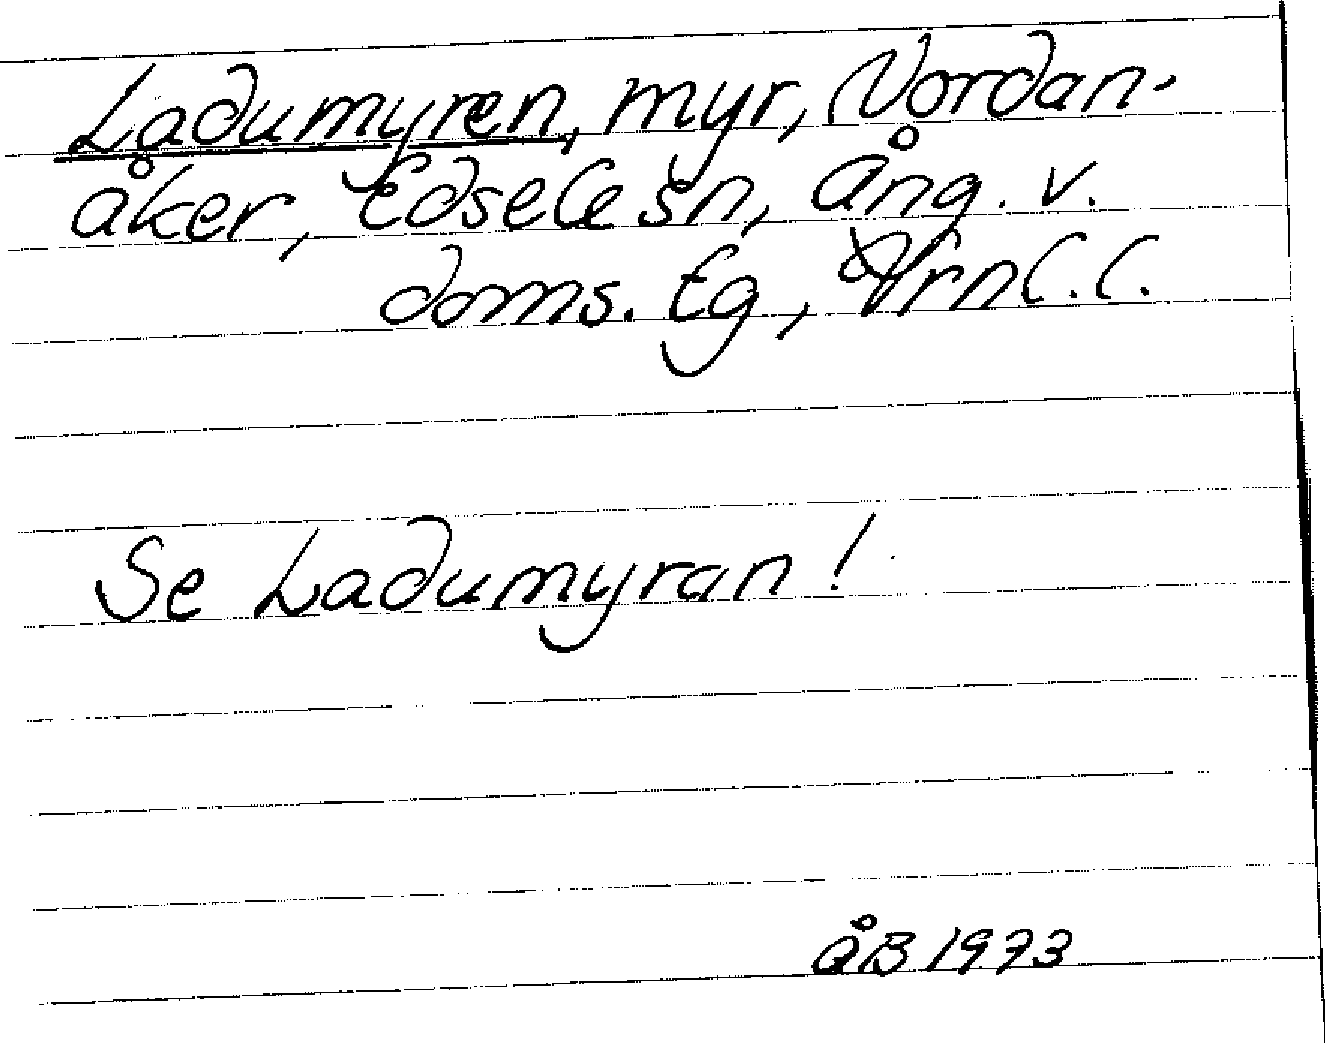 Ladumyren, myr, Nordan-
åker, Edsele sn, Ång. v.
doms. Eg, Vrnl.l.
Se Ladumyran!
ÅB 1973